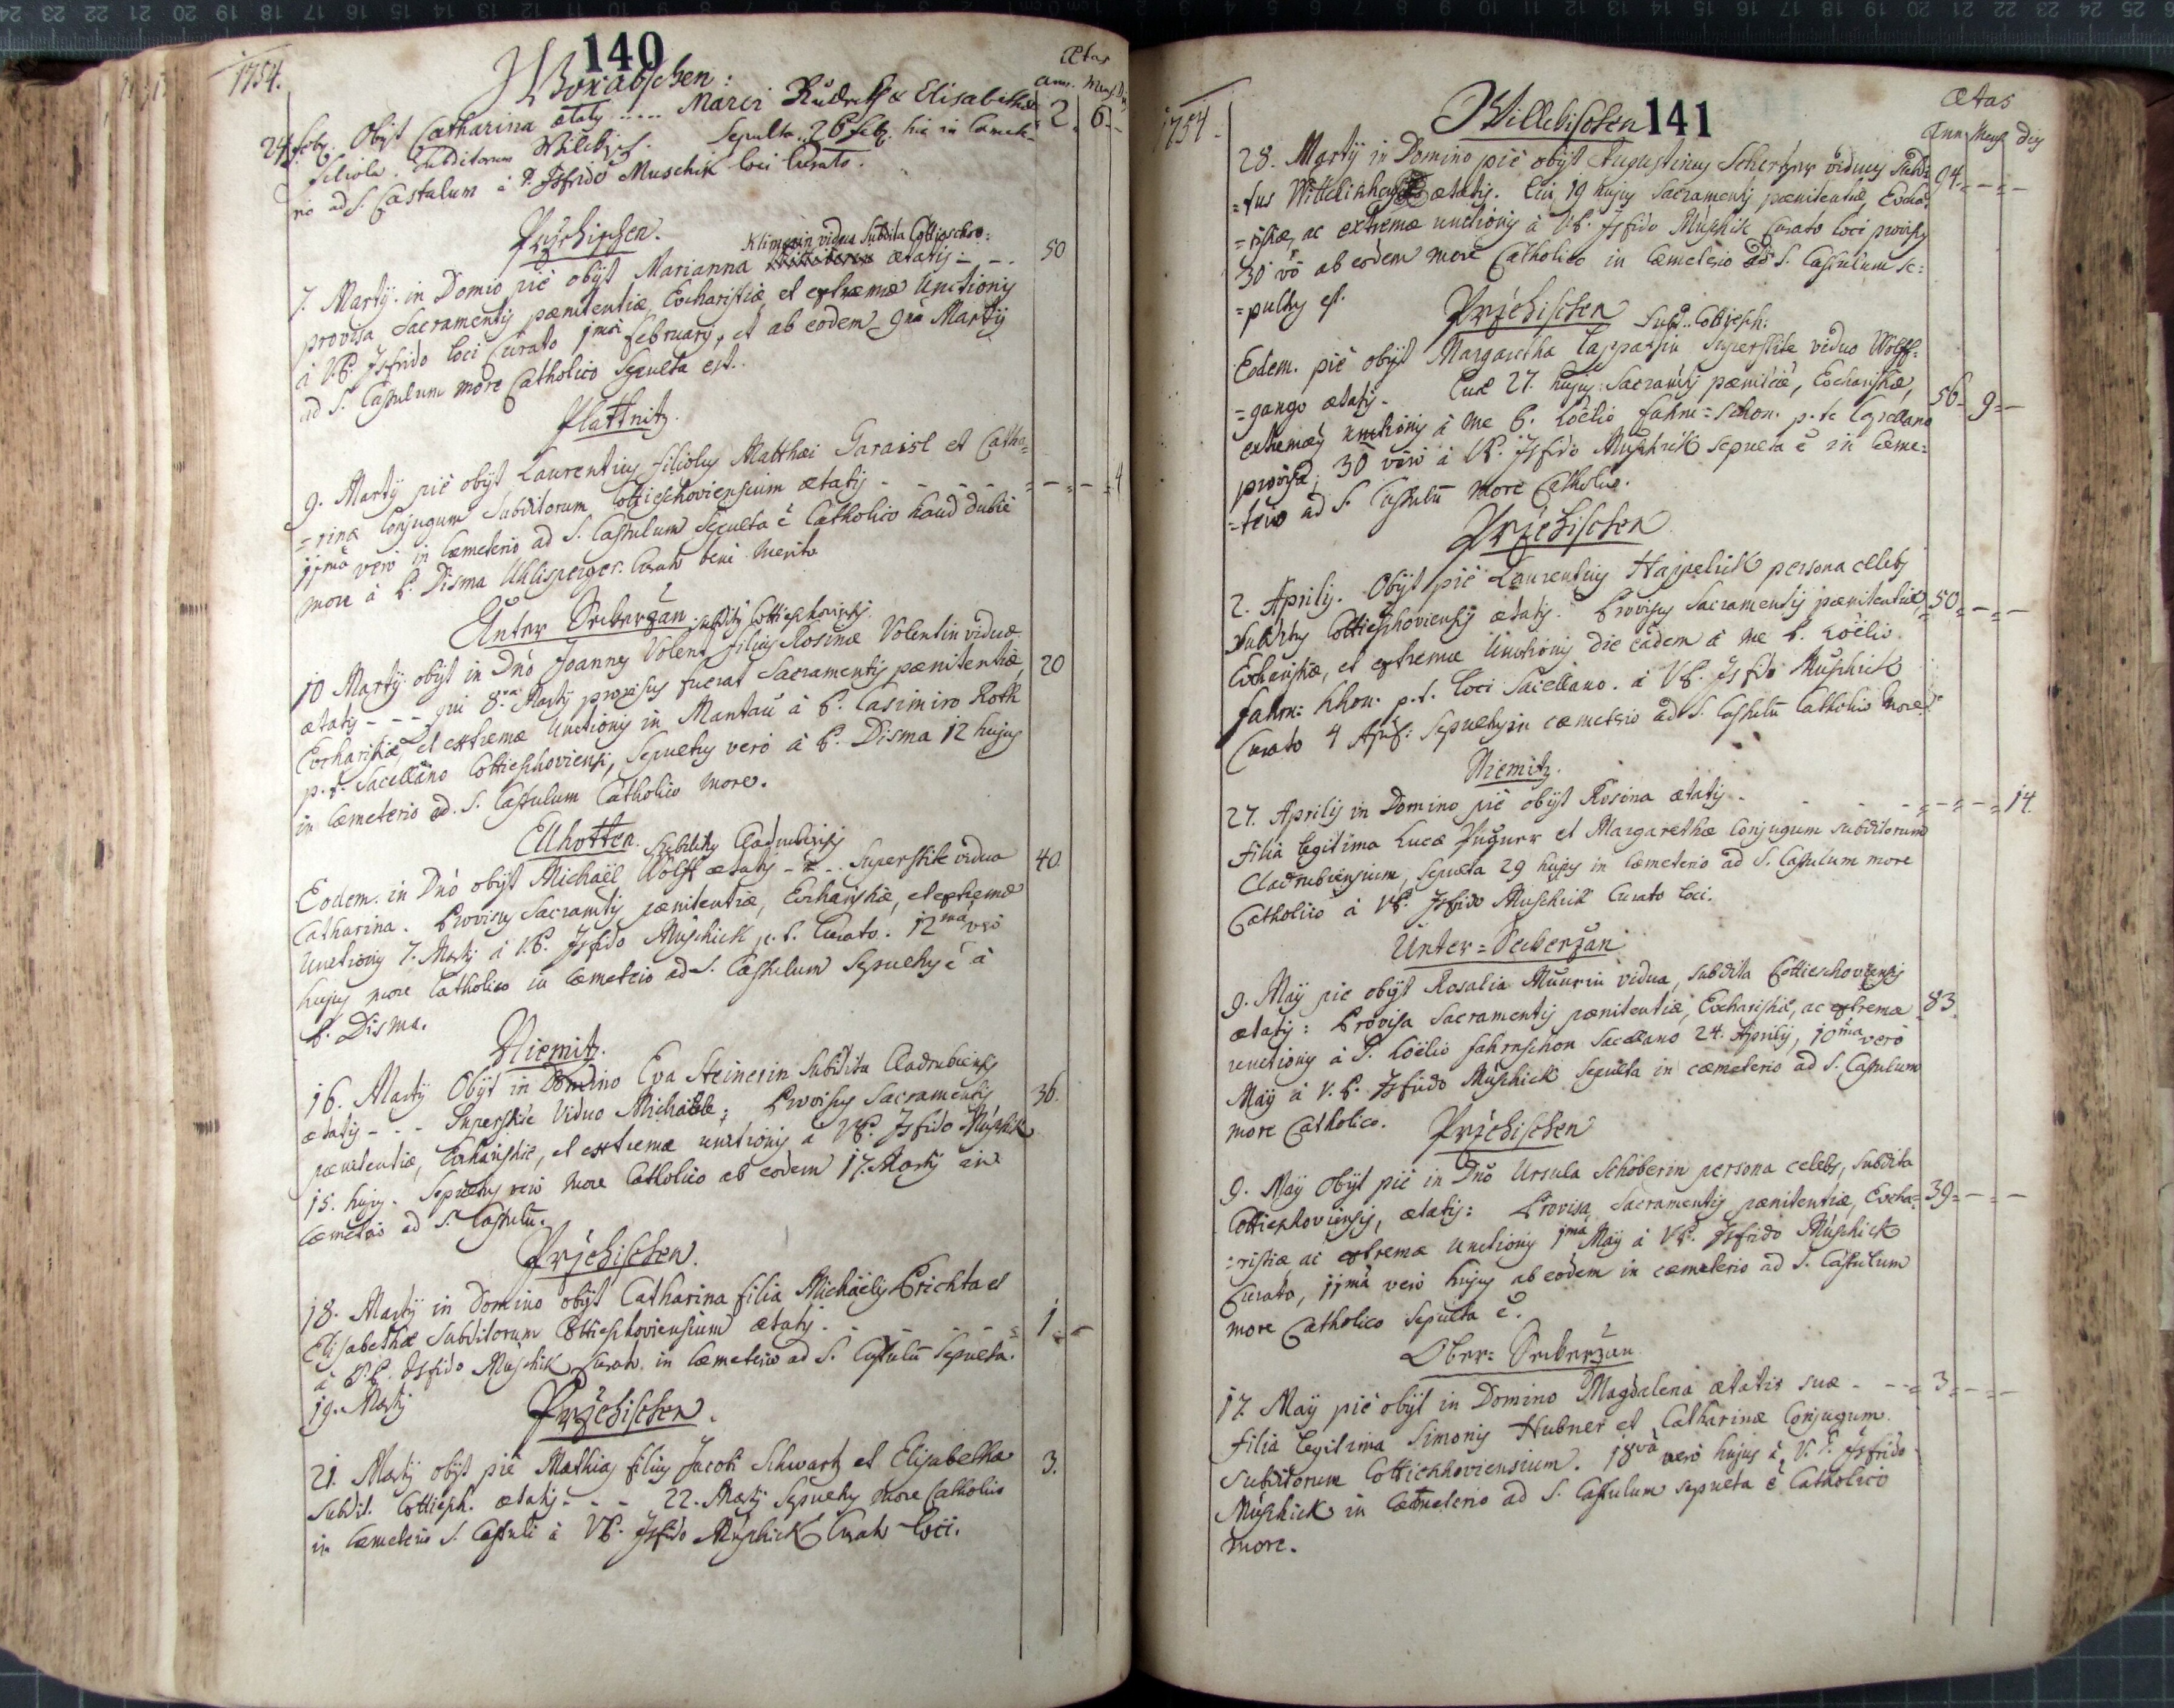 140
1754.
Ætas
Ann. Mens. D
24 Feb. Obijt Catharina ætatis ..... Marci & Elisabethæ 2. 6. -
filiola. Subditorum Sepulta. 26 Feb. hic in Cæmete-
rio ad S. Castulum à P. Isfrido Muschik loci Curato.
Przehischen.
Klimerin vidua Subdita Cottieschov:
7. Martij. in Domino piè obijt Marianna ætatis - - . 50
provisa Sacramentis pænitentiæ, Eucharistiæ, et extremæ Unctionis
à VP. Isfrido loci Curato Februarij, et ab eodem 9na Martij
ad S. Castulum more Catholico Sepulta est.
Plattnitz.
9. Martij piè obijt Laurentius filiolus Matthæi Garaisl et Catha=
=rinæ Conjugum Subditorum Cottieschoviensium ætatis - - - - - = - = - = 4
11ma verò in Cæmeterio ad S. Castulum Sepulta ẽ Catholico haud dubiè
more à P. Disma Uhlisperger. Curato bene Merito
Unter Seckerzan Subditus Cottieschoviensis
10 Martij obijt in Dño Joannes Volent filius Rosinæ Volentin viduæ.
ætatis - - - qui 8va Martij provisus fuerat Sacramentis pænitentiæ, 20
Eucharistiæ, et extremæ Unctionis in Mantau à P. Casimiro Roth
p. t. Sacellano Cottieschoviensi, Sepultus verò à P. Disma 12 hujus
in Cæmeterio ad. S. Castulum Catholico more.
Ellhotten. Subditus Cladrubiensis
Eodem. in Dño obijt Michaël Wolff ætatis - - . . Superstite vidua 40.
Catharina. Provisus Sacramentis pænitentiæ, Eucharistiæ, et extremæ
Unctionis 7. Martij à VP. Isfrido Muschick p. t. Curato. 12ma verò
hujus more Catholico in Cæmeterio ad S. Castulum Sepultus ẽ à
P. Disma.
Niemitz.
16. Martij Obijt in Domino Eva Steinerin Subdita Cladrubiensis
ætatis - - - Superstite Viduo Michaële; Provisus Sacramentis 36.
pænitentiæ, Eucharistiæ, et extremæ unctionis à VP. Isfrido Muschik
15. hujus. Sepultus verò More Catholico ab eodem 17. Martij in
Cæmeterio ad S. Castulũ.
Przehischen.
18. Martij in Domino obijt Catharina filia Michaëlis Prichta et
Elisabethæ Subditorum Cottieschoviensium ætatis. - - - - = 1 = -
à VP. Isfrido Muschik Curato in Cæmeterio ad S. Castulũ Sepulta.
19. Martij
Przehischen.
21. Martij obijt piè Mathias filius Jacobi Schwartz et Elisabetha
Subdit. Cottiesch. ætatis - - - 22. Martij Sepultus More Catholico 3.
in Cæmeterio S. Castuli à VP. Isfrido Muschick Curato loci.
141
1754.
Willebischen
Ætas
Ann Mens Dies
28. Martij in Domino piè obijt Augustinus Schertzer viduus Subdi=
=tus ætatis. Cui 19 hujus Sacramentis pænitentiæ, Eucha= 94 = - = -
=ristiæ, ac extremæ unctionis à VP. Isfrido Muschik Curato loci provisus
30 vò ab eodem more Catholico in Cæmeterio ad S. Castulum Se:
=pultus est.
Przehischen Subd. Cottiesch:
Eodem. piè obijt Margaretha Lapparin Superstite viduo Wolff-
=gango ætatis - Cuæ 27. hujus Sacramentis pænitentiæ, Eucharistiæ, 56 = 9 = -
extremæq unctionis à me P. Loëlio Fahrn=schon. p. t. Capellano
provisa; 30 verò à VP. Isfrido Muschick sepulta ẽ in Cæme=
=terio ad S. Castulũ More Catholico.
Przehischen
2. Aprilis. Obijt piè Laurentius Happelick persona cælebs
Subditus Cottieschoviensis ætatis. Provisus Sacramentis pænitentiæ, 50 = - = -
Eucharistiæ, et extremæ Unctionis die eadem à me P. Loëlio
Fahrn: schon. p. t. loci Sacellano. à VP. Isfrido Muschick
Curato 4 April: Sepultus in cæmeterio ad S. Castulũ Catholico More.
Niemitz.
27. Aprilis in Domino piè obijt Rosina ætatis - - - - = - = - = 14.
filia legitima Lucæ et Margarethæ Conjugum subditorum
Cladrubiensium, sepulta 29 hujus in Cæmeterio ad S. Castulum more
Catholico à VP. Isfrido Muschick Curato loci.
Unter = Seckerzan
9. Maij piè obijt Rosalia Muurin vidua, subdita Cottieschoviensis
ætatis: Provisa Sacramentis pænitentiæ, Eucharistiæ, ac extremæ 83.
unctionis à P. Loëlio Fahrnschon Sacellano 24. Aprilis, 10ma verò
Maij à V. P. Isfrido Muschick sepulta in cæmeterio ad S. Castulum
more Catholico.
Przehischen
9. Maij obijt piè in Dño Ursula Schoberin persona celebs, subdita
Cottieschoviensis, ætatis: Provisa Sacramentis pænitentiæ, Eucha= 39 = - = -
=ristiæ, ac extremæ Unctionis 1ma Maij à VP. Isfrido Muschick
Curato, 11ma verò hujus ab eodem in cæmeterio ad S. Castulum
more Catholico Sepulta ẽ.
Ober = Seckerzan
17. Maij piè obijt in Domino Magdalena ætatis suæ - - - = 3 = - = -
filia legitima Simonis Hubner et Catharinæ Conjugum
Subditorum Cottieschoviensium. 18va verò hujus à V. P. Isfrido
Muschick in Cæmeterio ad S. Castulum sepulta ẽ Catholico
more.